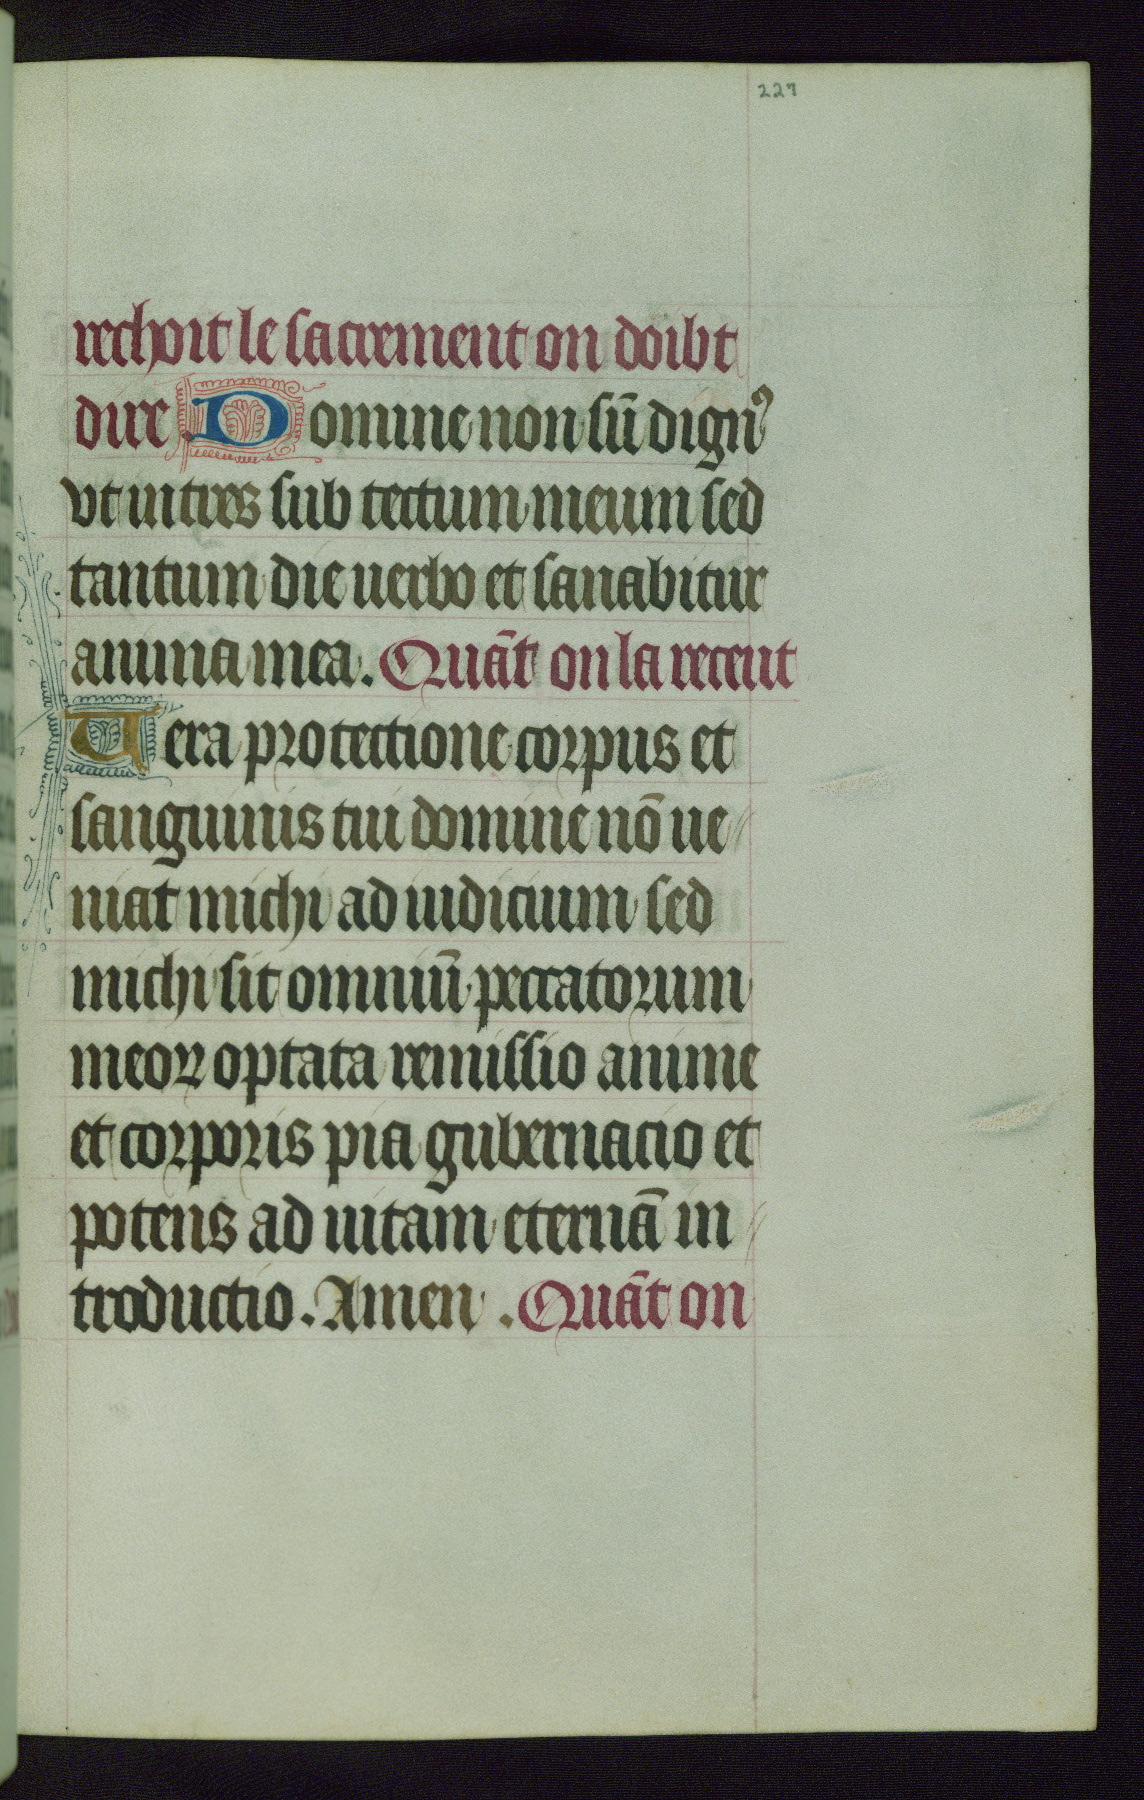 227
rechoit le sacrement on doibt
dire Domine non sū dignꝰ
vt intres sub tectum meum sed
tantum dic uerbo et sanabitur
anima mea. Quāt on la receut
Uera protectione corpus et
sanguinis tui domine nō ue
niat michi ad iudicium sed
michi sit omniū peccatorum
meoꝝ optata remissio anime
et corporis pia gubernacio et
potens ad uitam eternā in
troductio. Amen. Quāt on